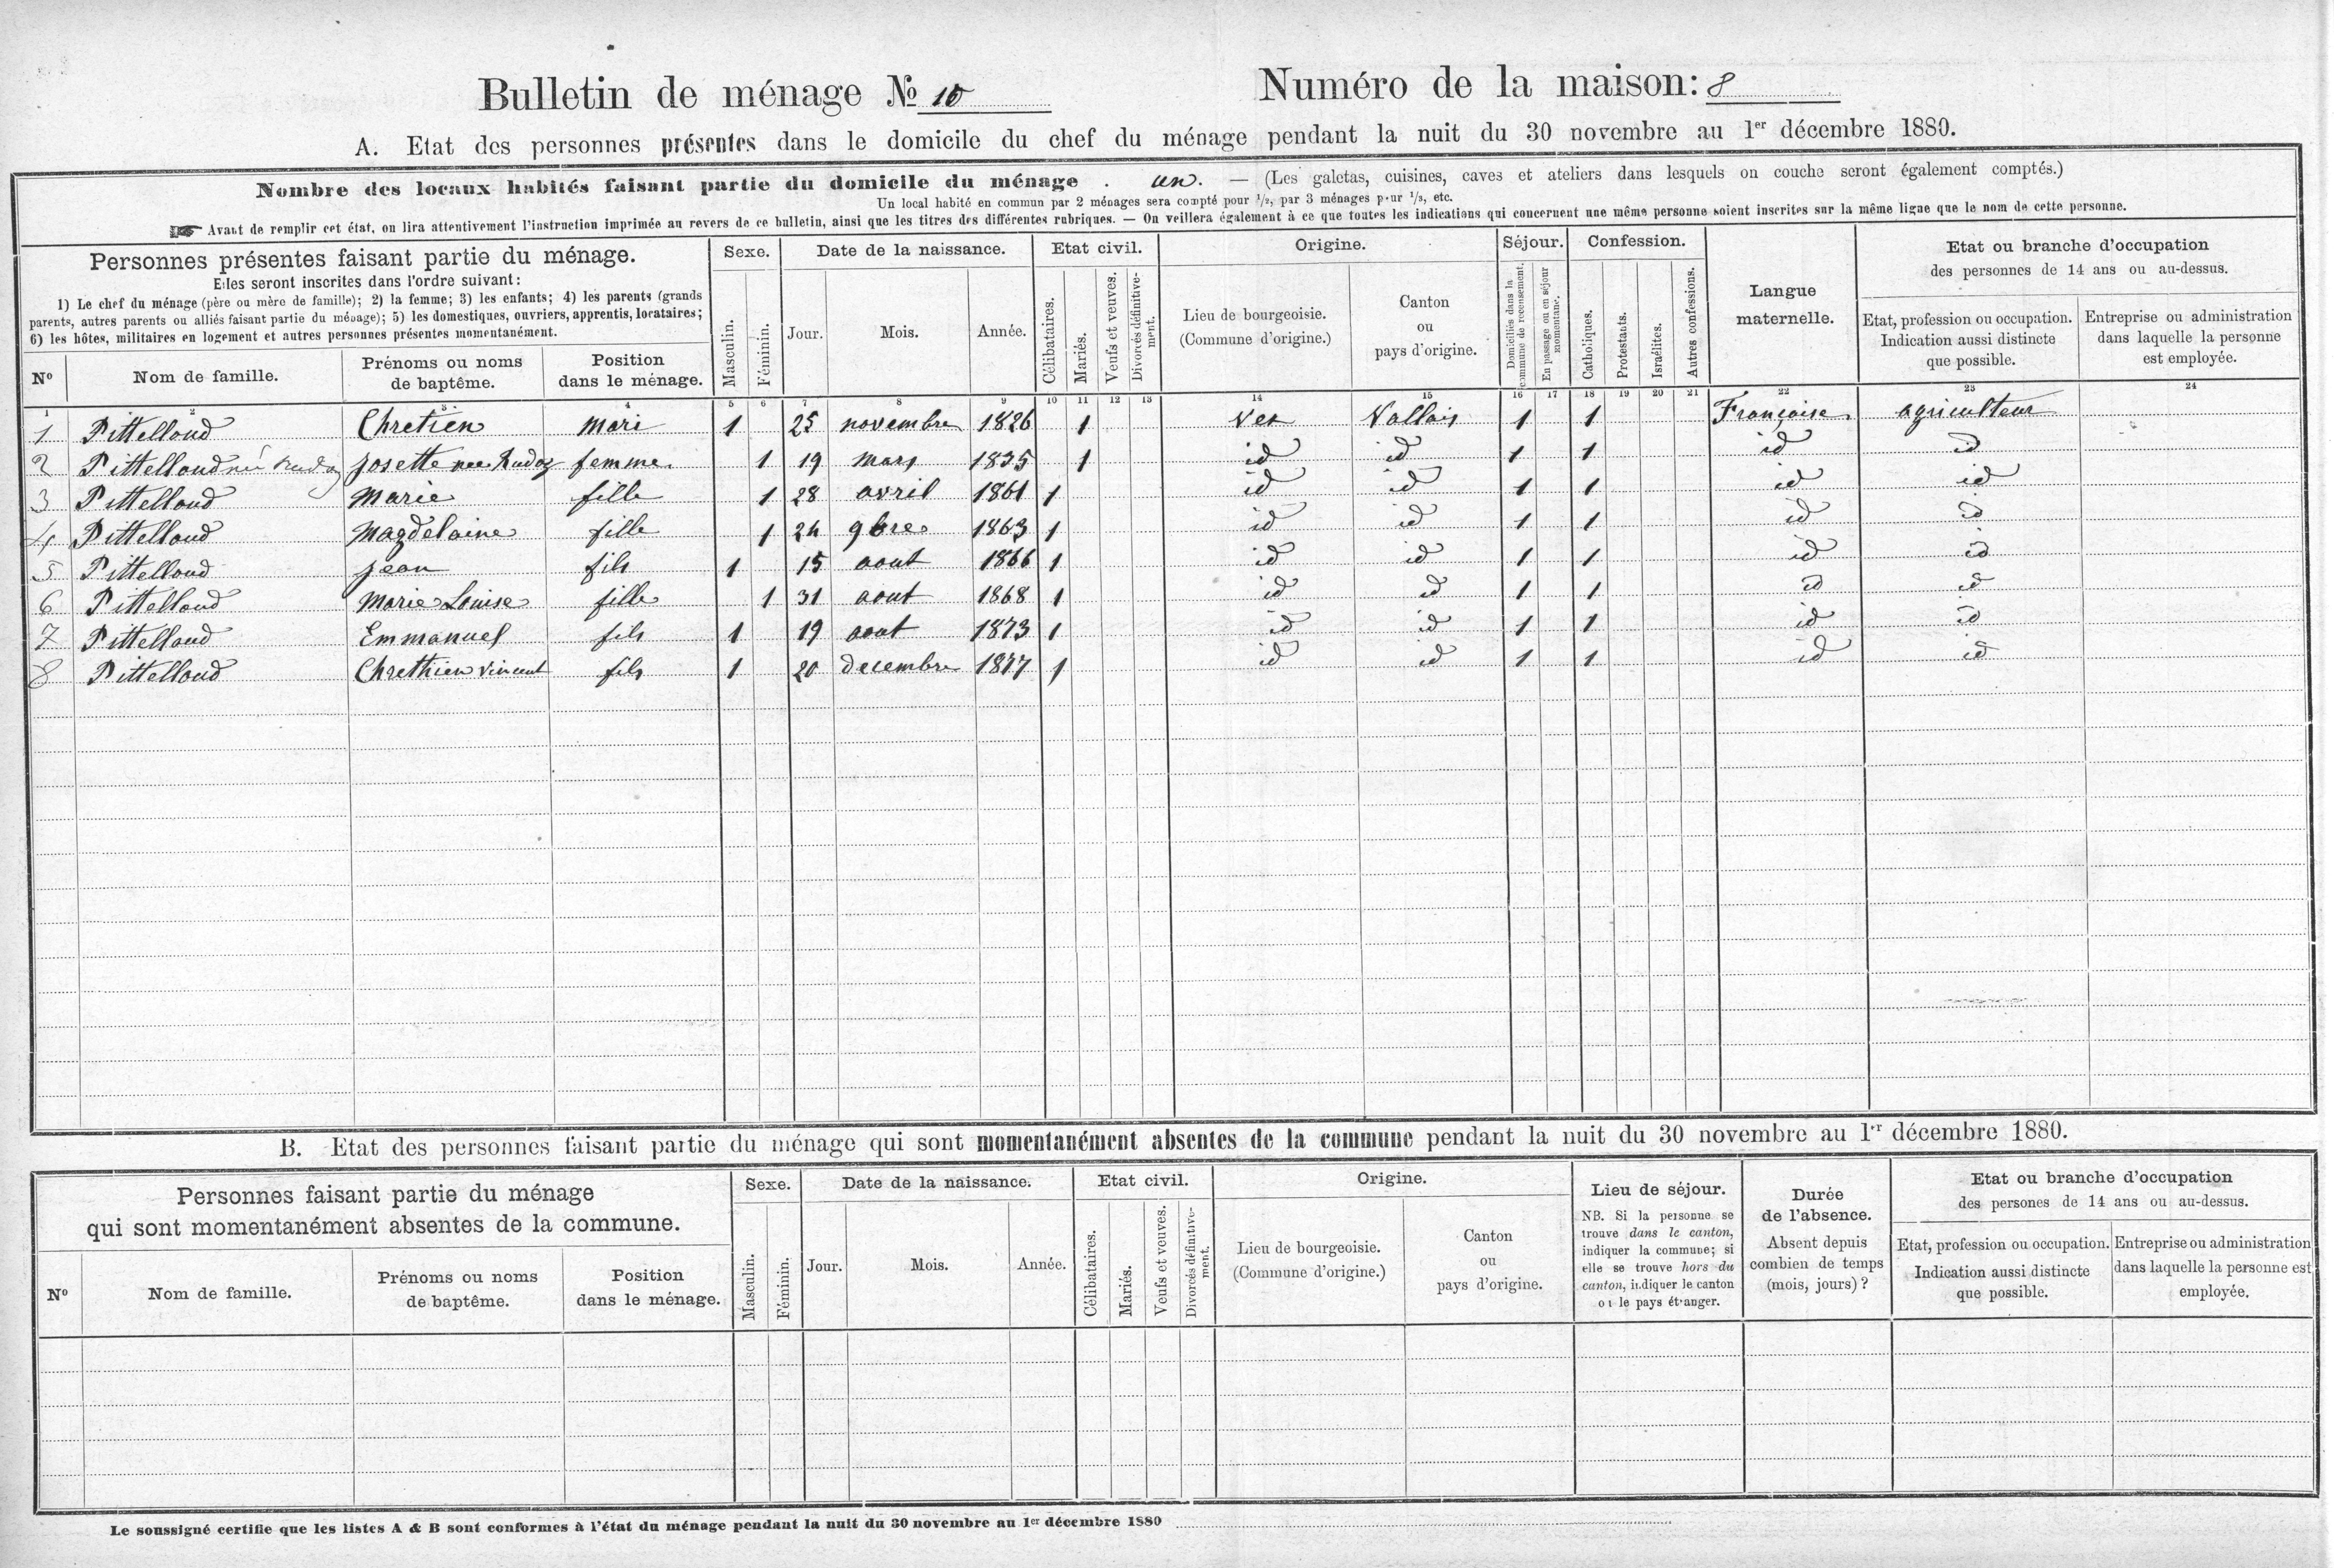 Bulletin de ménage № 10 Numéro de la maison: 8
A. Etat des personnes présentes dans le domicile du chef du ménage pendant la nuit du 30 novembre au 1er décembre 1880.
Nombre des locaux habités faisant partie du domicile du ménage . un. — (Les galetas, cuisines, caves et ateliers dans lesquels on couche seront également comptés.)
Un local habité en commun par 2 ménages sera compté pour 1/2, par 3 ménages pour 1/3, etc.
☛ Avant de remplir cet état, on lira attentivement l'instruction imprimée au revers de ce bulletin, ainsi que les titres des différentes rubriques. — On veillera également à ce que toutes les indications qui concernent une même personne soient inscrites sur la même ligne que le nom de cette personne.
Personnes présentes faisant partie du ménage.
Elles seront inscrites dans l'ordre suivant:
1) Le chef du ménage (père ou mère de famille); 2) la femme; 3) les enfants; 4) les parents (grands
parents, autres parents ou alliés faisant partie du ménage); 5) les domestiques, ouvriers, apprentis, locataires;
6) les hôtes, militaires en logement et autres personnes présentes momentanément.
Nº
Nom de famille.
Prénoms ou noms
de baptême.
Position
dans le ménage.
Sexe.
Masculin.
Féminin.
Date de la naissance.
Jour.
Mois.
Année.
Etat civil.
Célibataires.
Mariés.
Veufs et veuves.
Divorcés définitive-
ment.
Origine.
Lieu de bourgeoisie.
(Commune d'origine.)
Canton
ou
pays d'origine.
Séjour.
Domiciliés dans la
commune de recensement.
En passage ou en séjour
momentané.
Confession.
Catholiques.
Protestants.
Israélites.
Autres confessions.
Langue
maternelle.
Etat ou branche d'occupation
des personnes de 14 ans ou au-dessus.
Etat, profession ou occupation.
Indication aussi distincte
que possible.
Entreprise ou administration
dans laquelle la personne
est employée.
1 2 3 4 5 6 7 8 9 10 11 12 13 14 15 16 17 18 19 20 21 22 23 24
1 Pittelloud Chretien Mari 1 25 novembre 1826 1 Vex Vallais 1 1 Française agriculteur
2 Pittelloud née Rudaz Josette née Rudaz femme 1 19 mars 1835 1 id id 1 1 id id
3 Pittelloud Marie fille 1 28 avril 1861 1 id id 1 1 id id
4 Pittelloud Magdelaine fille 1 24 9bre 1863 1 id id 1 1 id id
5 Pittelloud Jean fils 1 15 aout 1866 1 id id 1 1 id id
6 Pittelloud Marie Louise fille 1 31 aout 1868 1 id id 1 1 id id
7 Pittelloud Emmanuel fils 1 19 aout 1873 1 id id 1 1 id id
8 Pittelloud Chrethien Vincent fils 1 20 decembre 1877 1 id id 1 1 id id
B. Etat des personnes faisant partie du ménage qui sont momentanément absentes de la commune pendant la nuit du 30 novembre au 1er décembre 1880.
Personnes faisant partie du ménage
qui sont momentanément absentes de la commune.
Nº
Nom de famille.
Prénoms ou noms
de baptême.
Position
dans le ménage.
Sexe.
Masculin.
Féminin.
Date de la naissance.
Jour.
Mois.
Année.
Etat civil.
Célibataires.
Mariés.
Veufs et veuves.
Divorcés définitive-
ment.
Origine.
Lieu de bourgeoisie.
(Commune d'origine.)
Canton
ou
pays d'origine.
Lieu de séjour.
NB. Si la personne se
trouve dans le canton,
indiquer la commune; si
elle se trouve hors du
canton, indiquer le canton
ou le pays étranger.
Durée
de l'absence.
Absent depuis
combien de temps
(mois, jours) ?
Etat ou branche d'occupation
des persones de 14 ans ou au-dessus.
Etat, profession ou occupation.
Indication aussi distincte
que possible.
Entreprise ou administration
dans laquelle la personne est
employée.
Le soussigné certifie que les listes A & B sont conformes à l'état du ménage pendant la nuit du 30 novembre au 1er décembre 1880